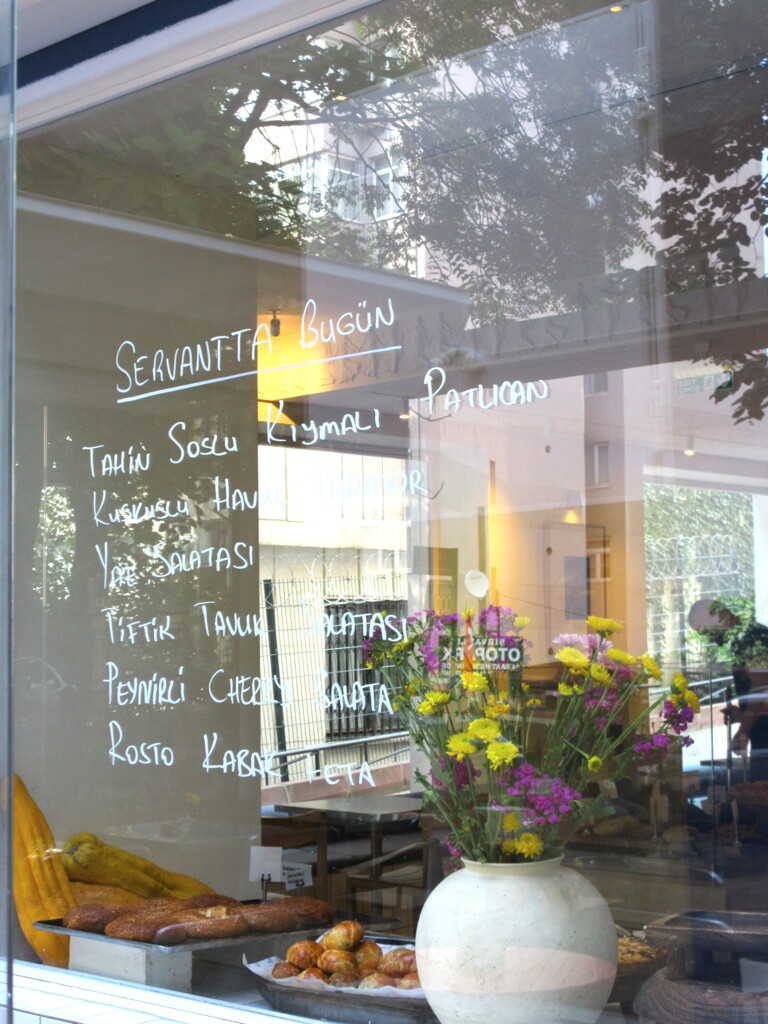 SERVANTTA BUGÜN
TAHİN SOSLU KIYMALI PATLICAN
KUSKUSLU HAVUÇ TARATOR
YAZ SALATASI
TİFTİK TAVUK SALATASI
PEYNİRLİ CHERRY SALATA
ROSTO KABAK FETA
OTOPARK